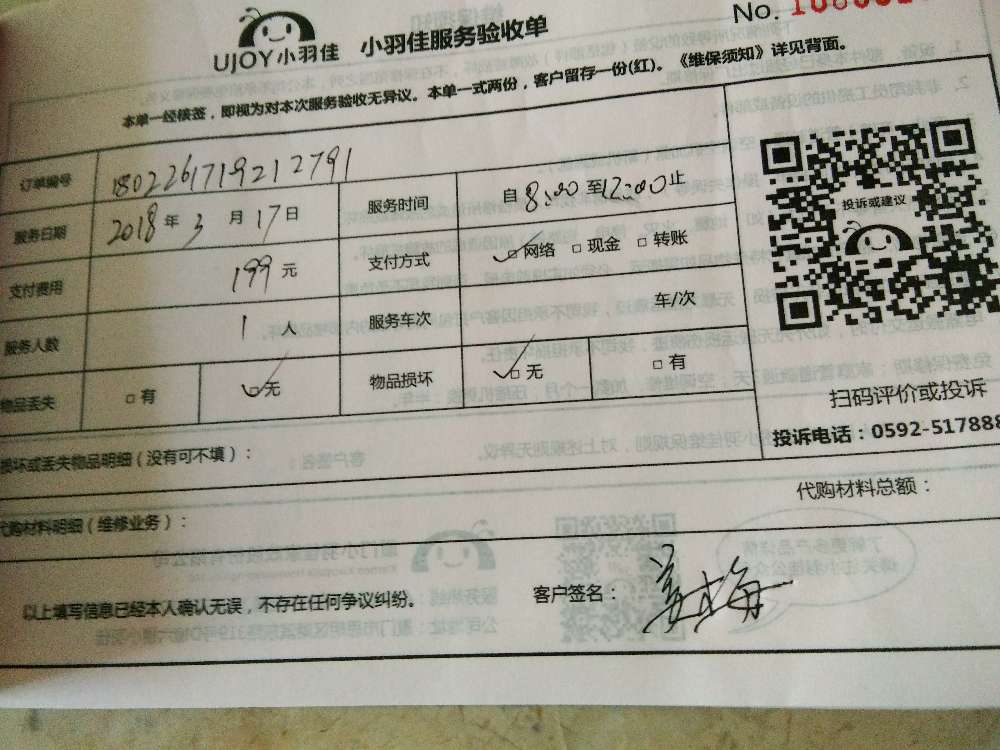 UJOY小羽佳 小羽佳服务验收单
No.
本单一经核签，即视为对本次服务验收无异议。本单一式两份，客户留存一份(红)。《维保须知》详见背面。
订单编号 1802261719212791
服务日期 2018年3月17日 服务时间 自8:00至12:00止
支付费用 199元 支付方式 ☑网络 □现金 □转账
服务人数 1人 服务车次 车/次
物品丢失 □有 ☑无 物品损坏 ☑无 □有
投诉或建议
扫码评价或投诉
投诉电话：0592-517888
损坏或丢失物品明细（没有可不填）：
代购材料明细（维修业务）： 代购材料总额：
以上填写信息已经本人确认无误，不存在任何争议纠纷。 客户签名：